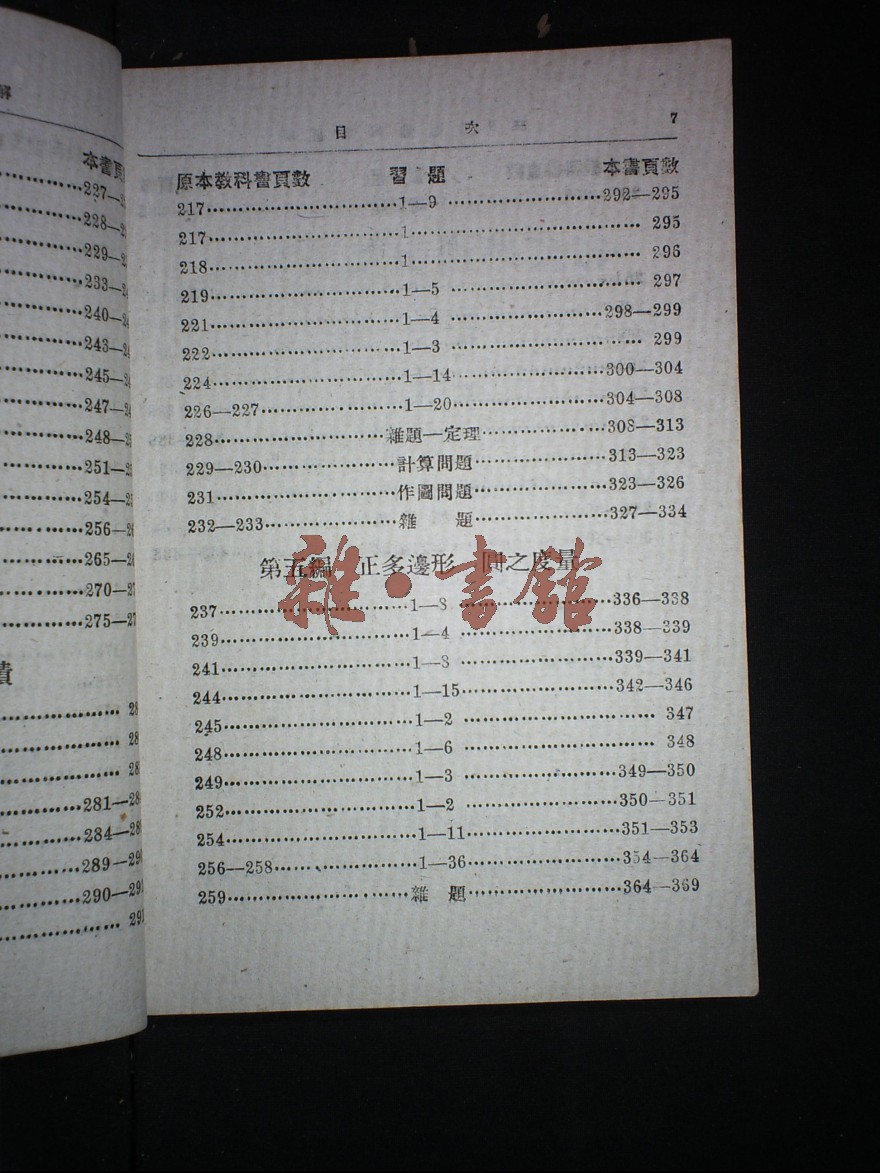 解
本書頁
227—2
228—2
229—2
233—2
240—2
243—2
245—2
247—2
248—2
251—2
254—2
256—2
265—26
270—27
275—27
積
28
28
28
281—28
284—28
289—290
290—291
291
目 次 7
原本教科書頁數 習題 本書頁數
217 1—9 292—295
217 1 295
218 1 296
219 1—5 297
221 1—4 298—299
222 1—3 299
224 1—14 300—304
226—227 1—20 304—308
228 雜題—定理 308—313
229—230 計算問題 313—323
231 作圖問題 323—326
232—233 雜題 327—334
第五編 正多邊形 圓之度量
雜·書館
237 1—8 336—338
239 1—4 338—339
241 1—8 339—341
244 1—15 342—346
245 1—2 347
248 1—6 348
249 1—3 349—350
252 1—2 350—351
254 1—11 351—353
256—258 1—36 354—364
259 雜題 364—369